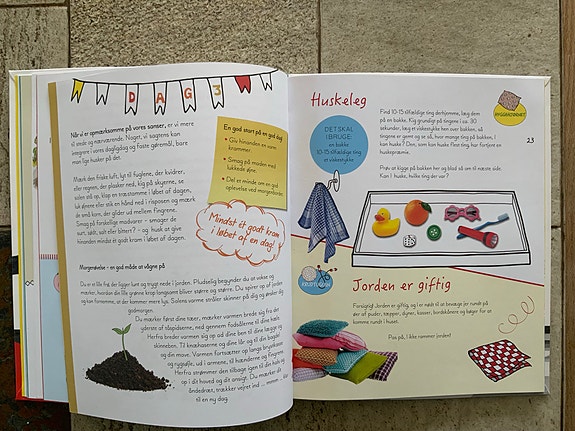 DAG 3
Når vi er opmærksomme på vores sanser, er vi mere
til stede og nærværende. Noget, vi sagtens kan
integrere i vores dagligdag og faste gøremål, bare
man lige husker på det.
Mærk den friske luft, lyt til fuglene, der kvidrer,
eller regnen, der plasker ned, kig på skyerne, se
solen stå op, klap en træstamme i løbet af dagen,
luk øjnene eller stik en hånd ned i risposen og mærk
de små korn, der glider ud mellem fingrene.
Smag på forskellige madvarer - smager de
surt, sødt, salt eller bittert? - og husk at give
hinanden mindst ét godt kram i løbet af dagen.
En god start på en god dag!
• Giv hinanden en varm
krammer
• Smag på maden med
lukkede øjne.
• Del et minde om en god
oplevelse ved morgenbordet.
Mindst ét godt kram
i løbet af en dag!
Morgenhvile - en god måde at vågne på
Du er et lille frø, der ligger lunt og trygt nede i jorden. Pludselig begynder du at vokse og
mærker, hvordan din lille grønne krop langsomt bliver større og større. Du spirer op af jorden
og kan fornemme, at der kommer mere lys. Solens varme stråler skinner på dig og ønsker dig
godmorgen.
Du mærker først dine tæer, mærker varmen brede sig fra det
yderste af tåspidserne, ned gennem fodsålerne til dine hæle.
Herfra breder varmen sig op ad dine ben til dine lægge og
skinneben. Til knæhaserne og dine lår og til din bagdel
og din mave. Varmen fortsætter op langs brystkassen
og rygsøjle, ud i armene, til hænderne og fingrene.
Herfra strømmer den tilbage igen til din hals og
op i dit hoved og dit ansigt. Du mærker dit
åndedræt, trækker vejret ind ... mmmm ... klar
til en ny dag.
Huskeleg
DET SKAL
I BRUGE:
en bakke
10-15 tilfældige ting
et viskestykke
Find 10-15 tilfældige ting derhjemme, læg dem
på en bakke. Kig grundigt på tingene i ca. 30
sekunder, læg et viskestykke hen over bakken, så
tingene er gemt og se så, hvor mange ting på bakken, I
kan huske? Den, som kan huske flere ting har fortjent en
huskepræmie.
Prøv at kigge på bakken her og blad så om til næste side.
Kan I huske, hvilke ting der var?
23
Jorden er giftig
Forsigtig! Jorden er giftig, og I er nødt til at bevæge jer rundt på
øer af puder, tæpper, dyner, kasser, bordskånere og bøger for at
komme rundt i huset.
Pas på, I ikke rammer jorden!